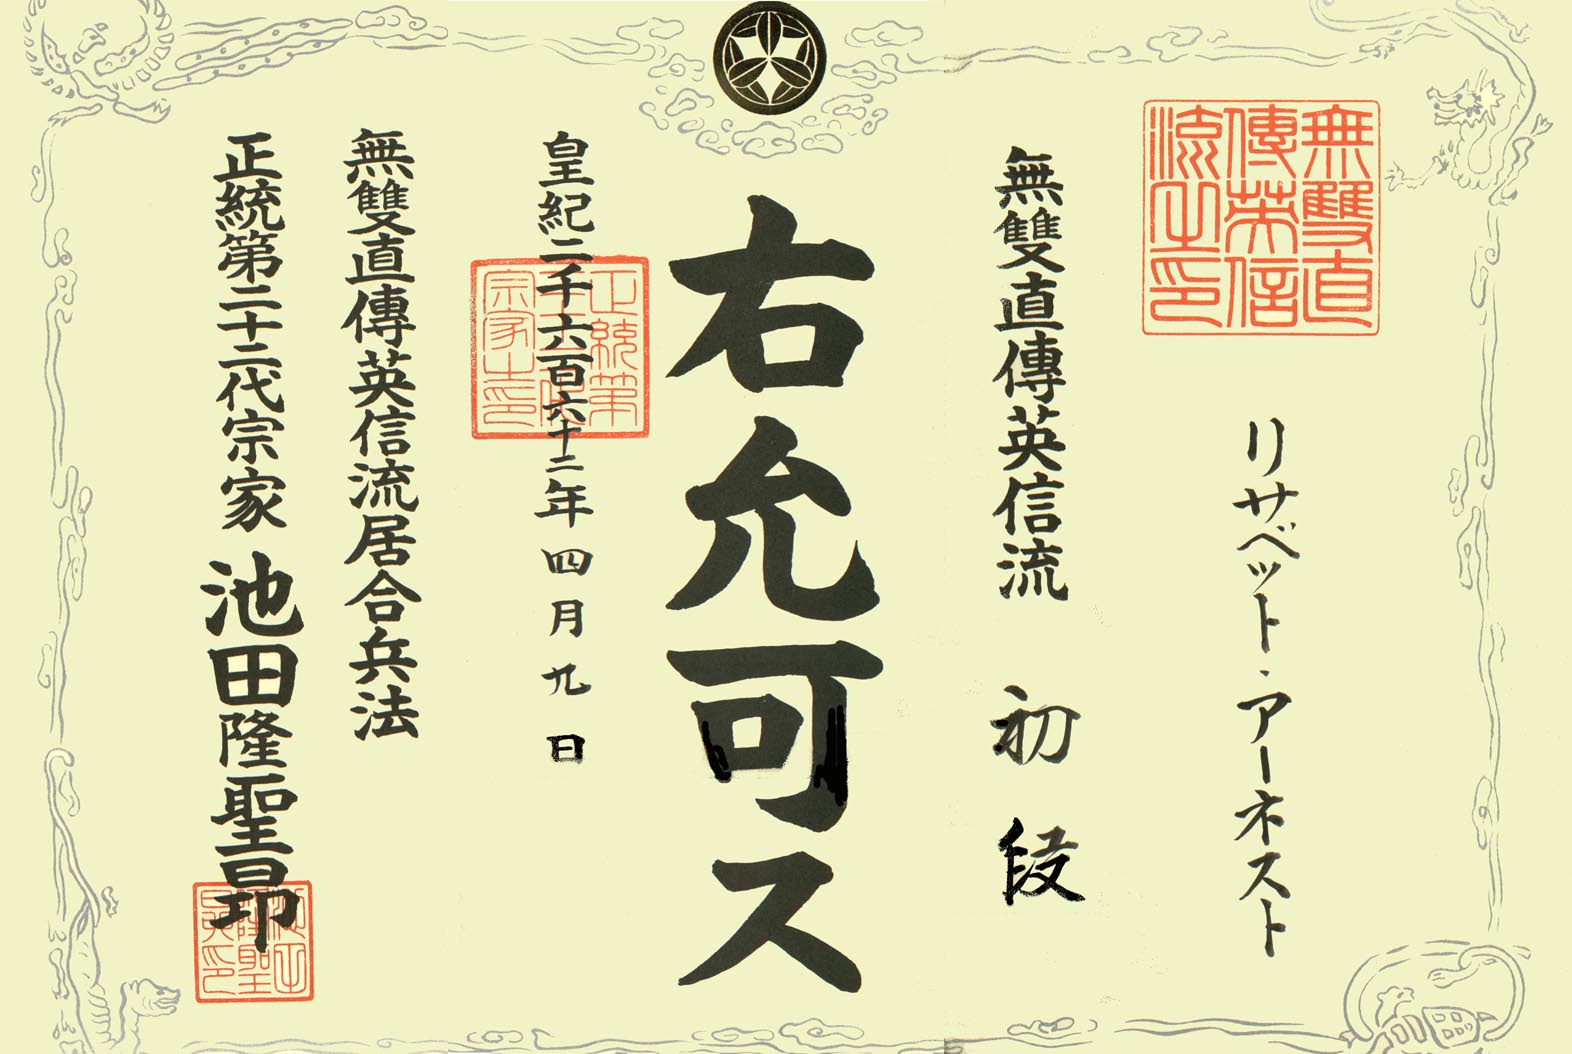 無雙直傳英信流之印
リサベット・アーネスト
無雙直傳英信流 初段
右允可ス
皇紀二千六百六十二年四月九日
無雙直傳英信流居合兵法
正統第二十二代宗家 池田隆聖昴